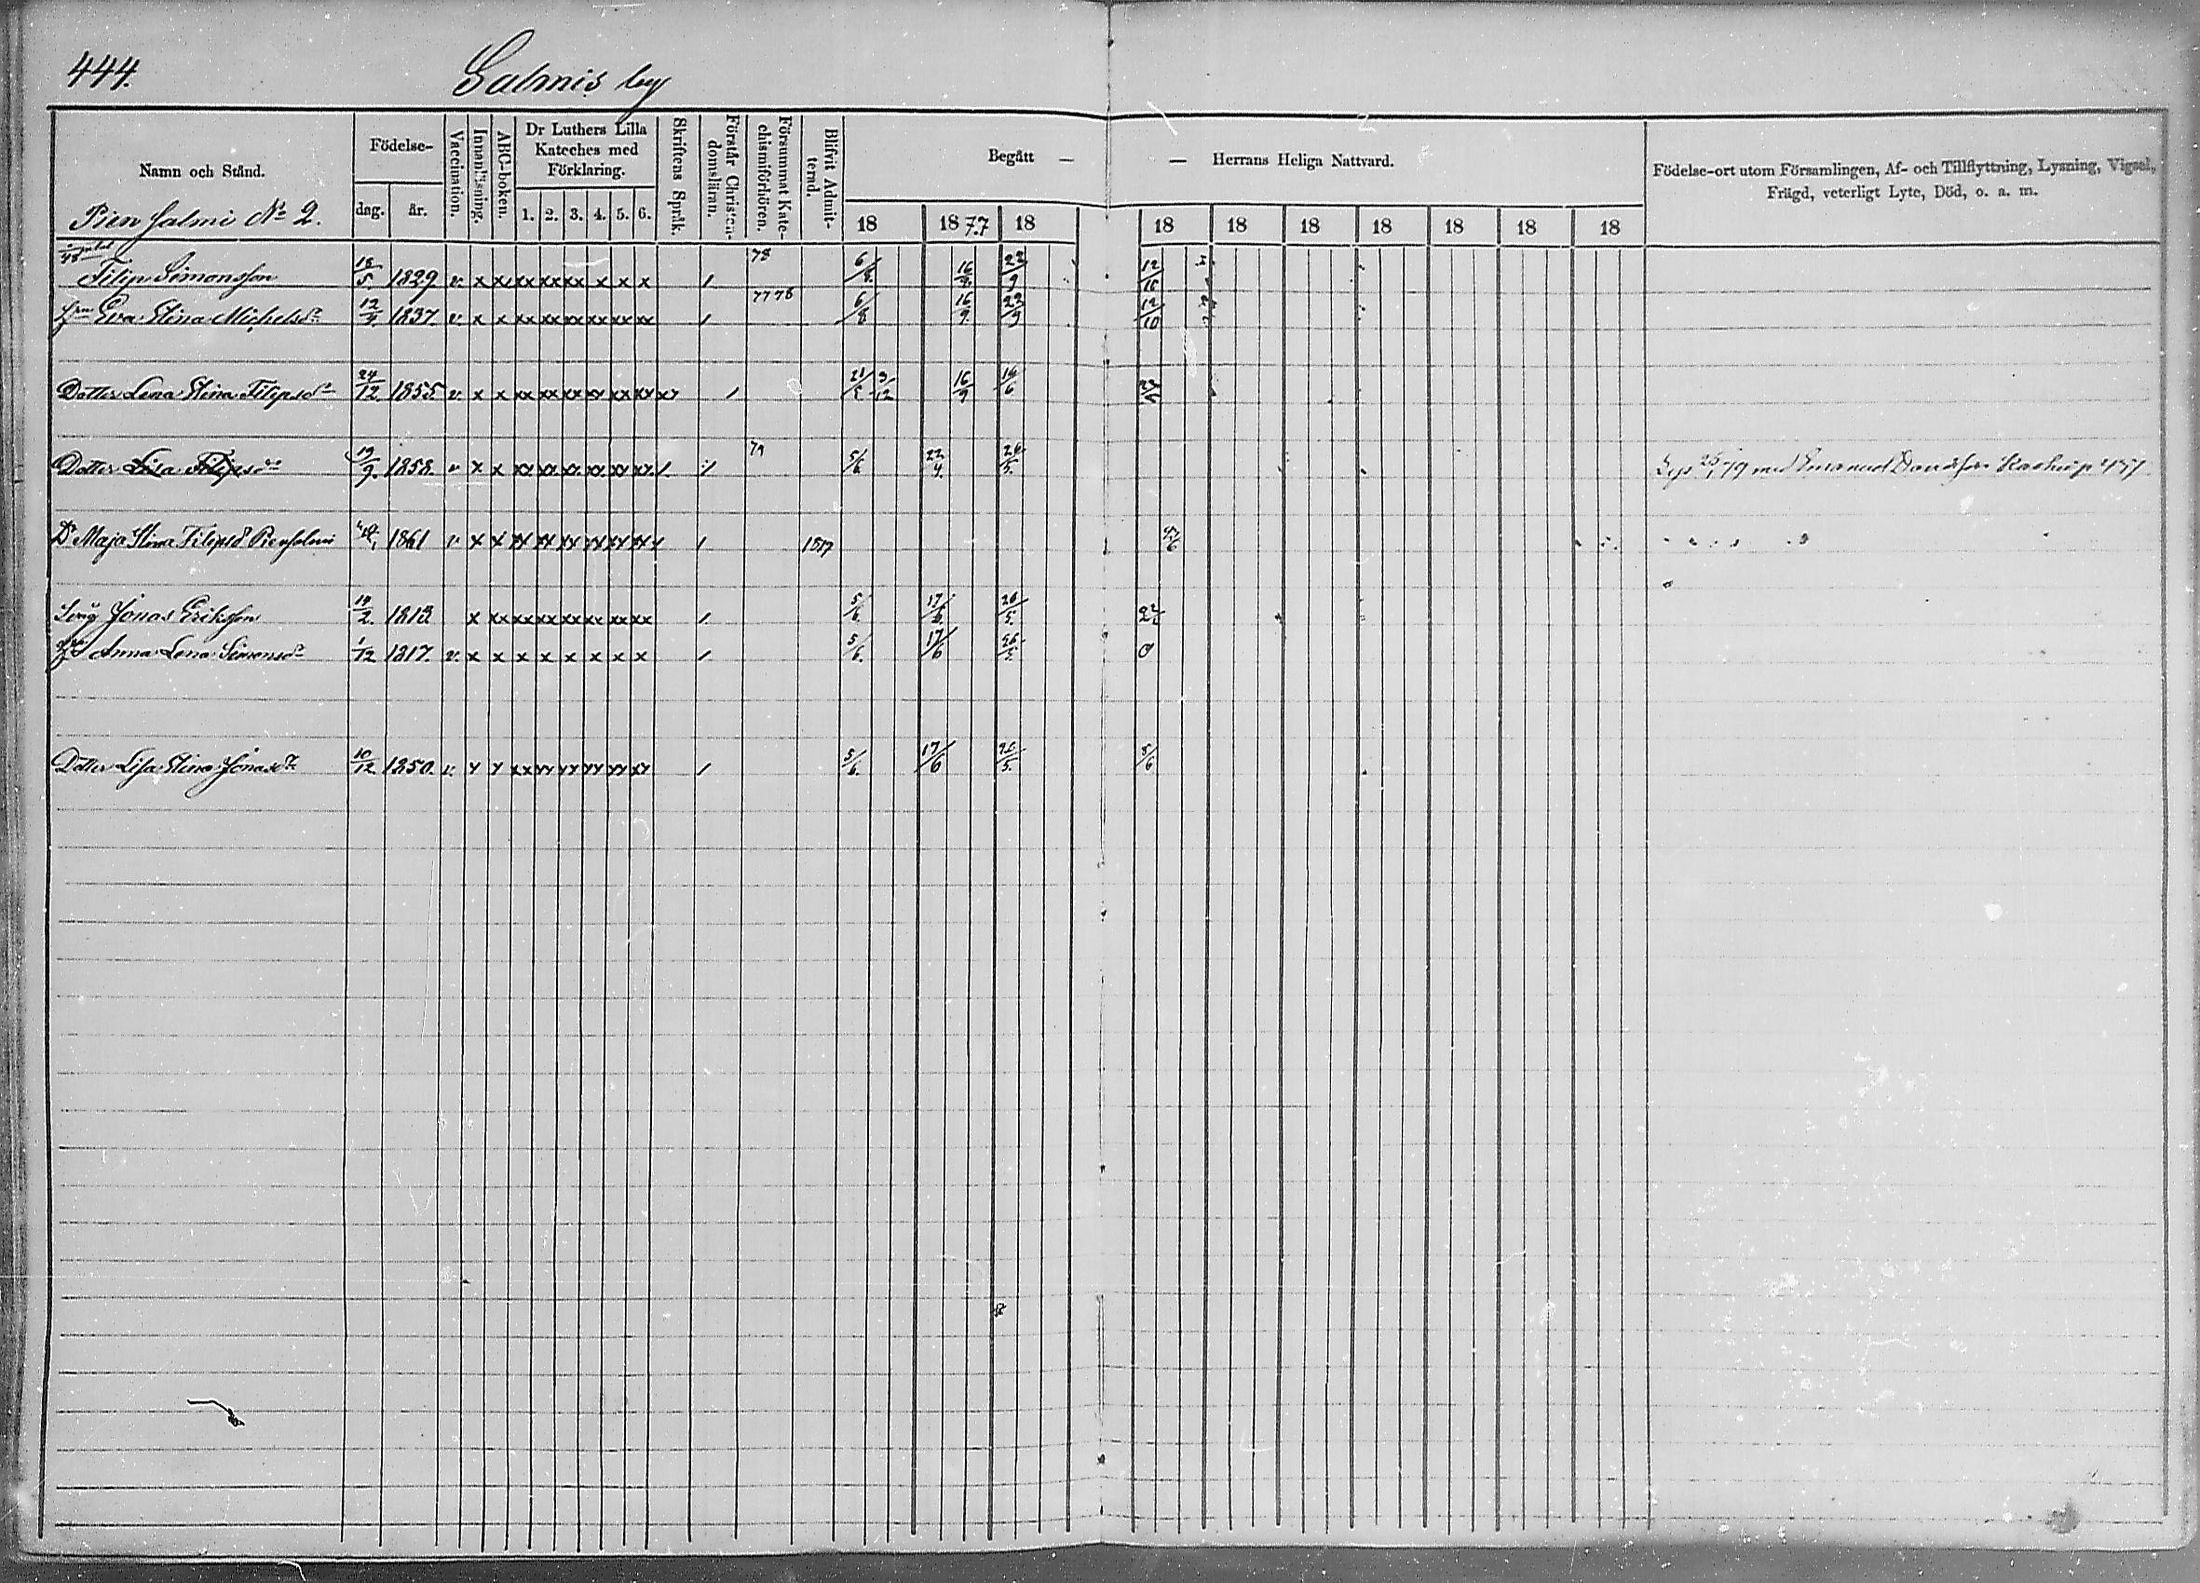 444.
Salmis by
Namn och Stånd.
Födelse-
dag. år.
Vaccination.
Innanläsning.
ABC-boken.
Dr Luthers Lilla Kateches med Förklaring.
1. 2. 3. 4. 5. 6.
Skriftens Språk.
Förstår Christendomsläran.
Försummat Katechismiförhören.
Blifvit Admitterad.
Begått — — Herrans Heliga Nattvard.
18 1877 18 18 18 18 18 18 18 18
Födelse-ort utom Församlingen, Af- och Tillflyttning, Lysning, Vigsel,
Frägd, veterligt Lyte, Död, o. a. m.
Pien Salmi No 2.
Filip Simonsson 18/5 1829 v. x x xx xx xx x x x / 78 6/8 16/9 22/9 12/10
Hru Eva Stina Michelsdr 12/9 1837. v. x x xx xx xx xx xx xx / 77 78 6/8 16/9 22/9 12/10
Dotter Lena Stina Filipsdr 24/12 1855 v. x x xx xx xx xx xx xx xx / 9/12 16/9
Dotter Lisa Filipsdr 19/9. 1858. v x x xx xx xx xx xx xx / 79 5/6 22/4. 26/5. 79 med Emanuel
Dr Maja Stina Filipsd Piensalmi 1861 v x x xx xx xx xx xx xx /
Jonas Eriksson 18/2. 1813. x xx xx xx xx xx xx xx / 5/6. 17/6 26/5.
Anna Lena Simonsdr 1/12 1817. v. x x x x x x x x / 5/6. 17/6 26/5. 0
Dotter Lisa Stina Jonasdr 10/12 1850. v. x x xx xx xx xx xx xx / 5/6. 17/6 26/5. 8/6